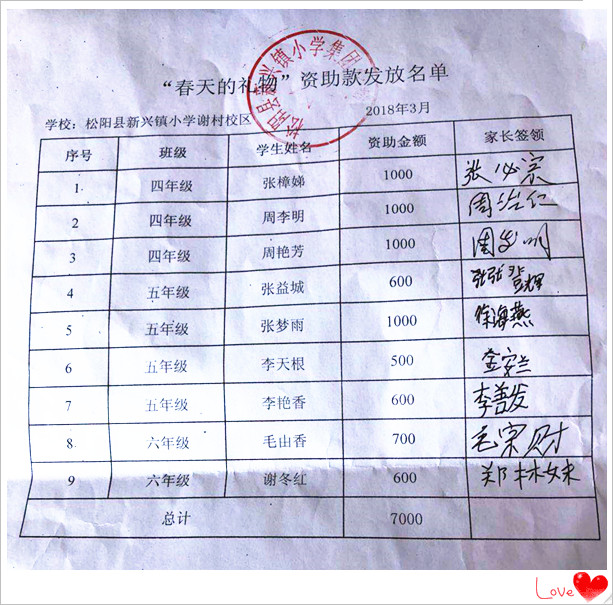 “春天的礼物”资助款发放名单
学校：松阳县新兴镇小学谢村校区 2018年3月
序号 班级 学生姓名 资助金额 家长签领
1 四年级 张樟娣 1000 张必宗
2 四年级 周李明 1000
3 四年级 周艳芳 1000
4 五年级 张益城 600
5 五年级 张梦雨 1000 徐海燕
6 五年级 李天根 500
7 五年级 李艳香 600 李善发
8 六年级 毛山香 700 毛宗财
9 六年级 谢冬红 600 郑林妹
总计 7000
松阳县新兴镇小学集团
Love